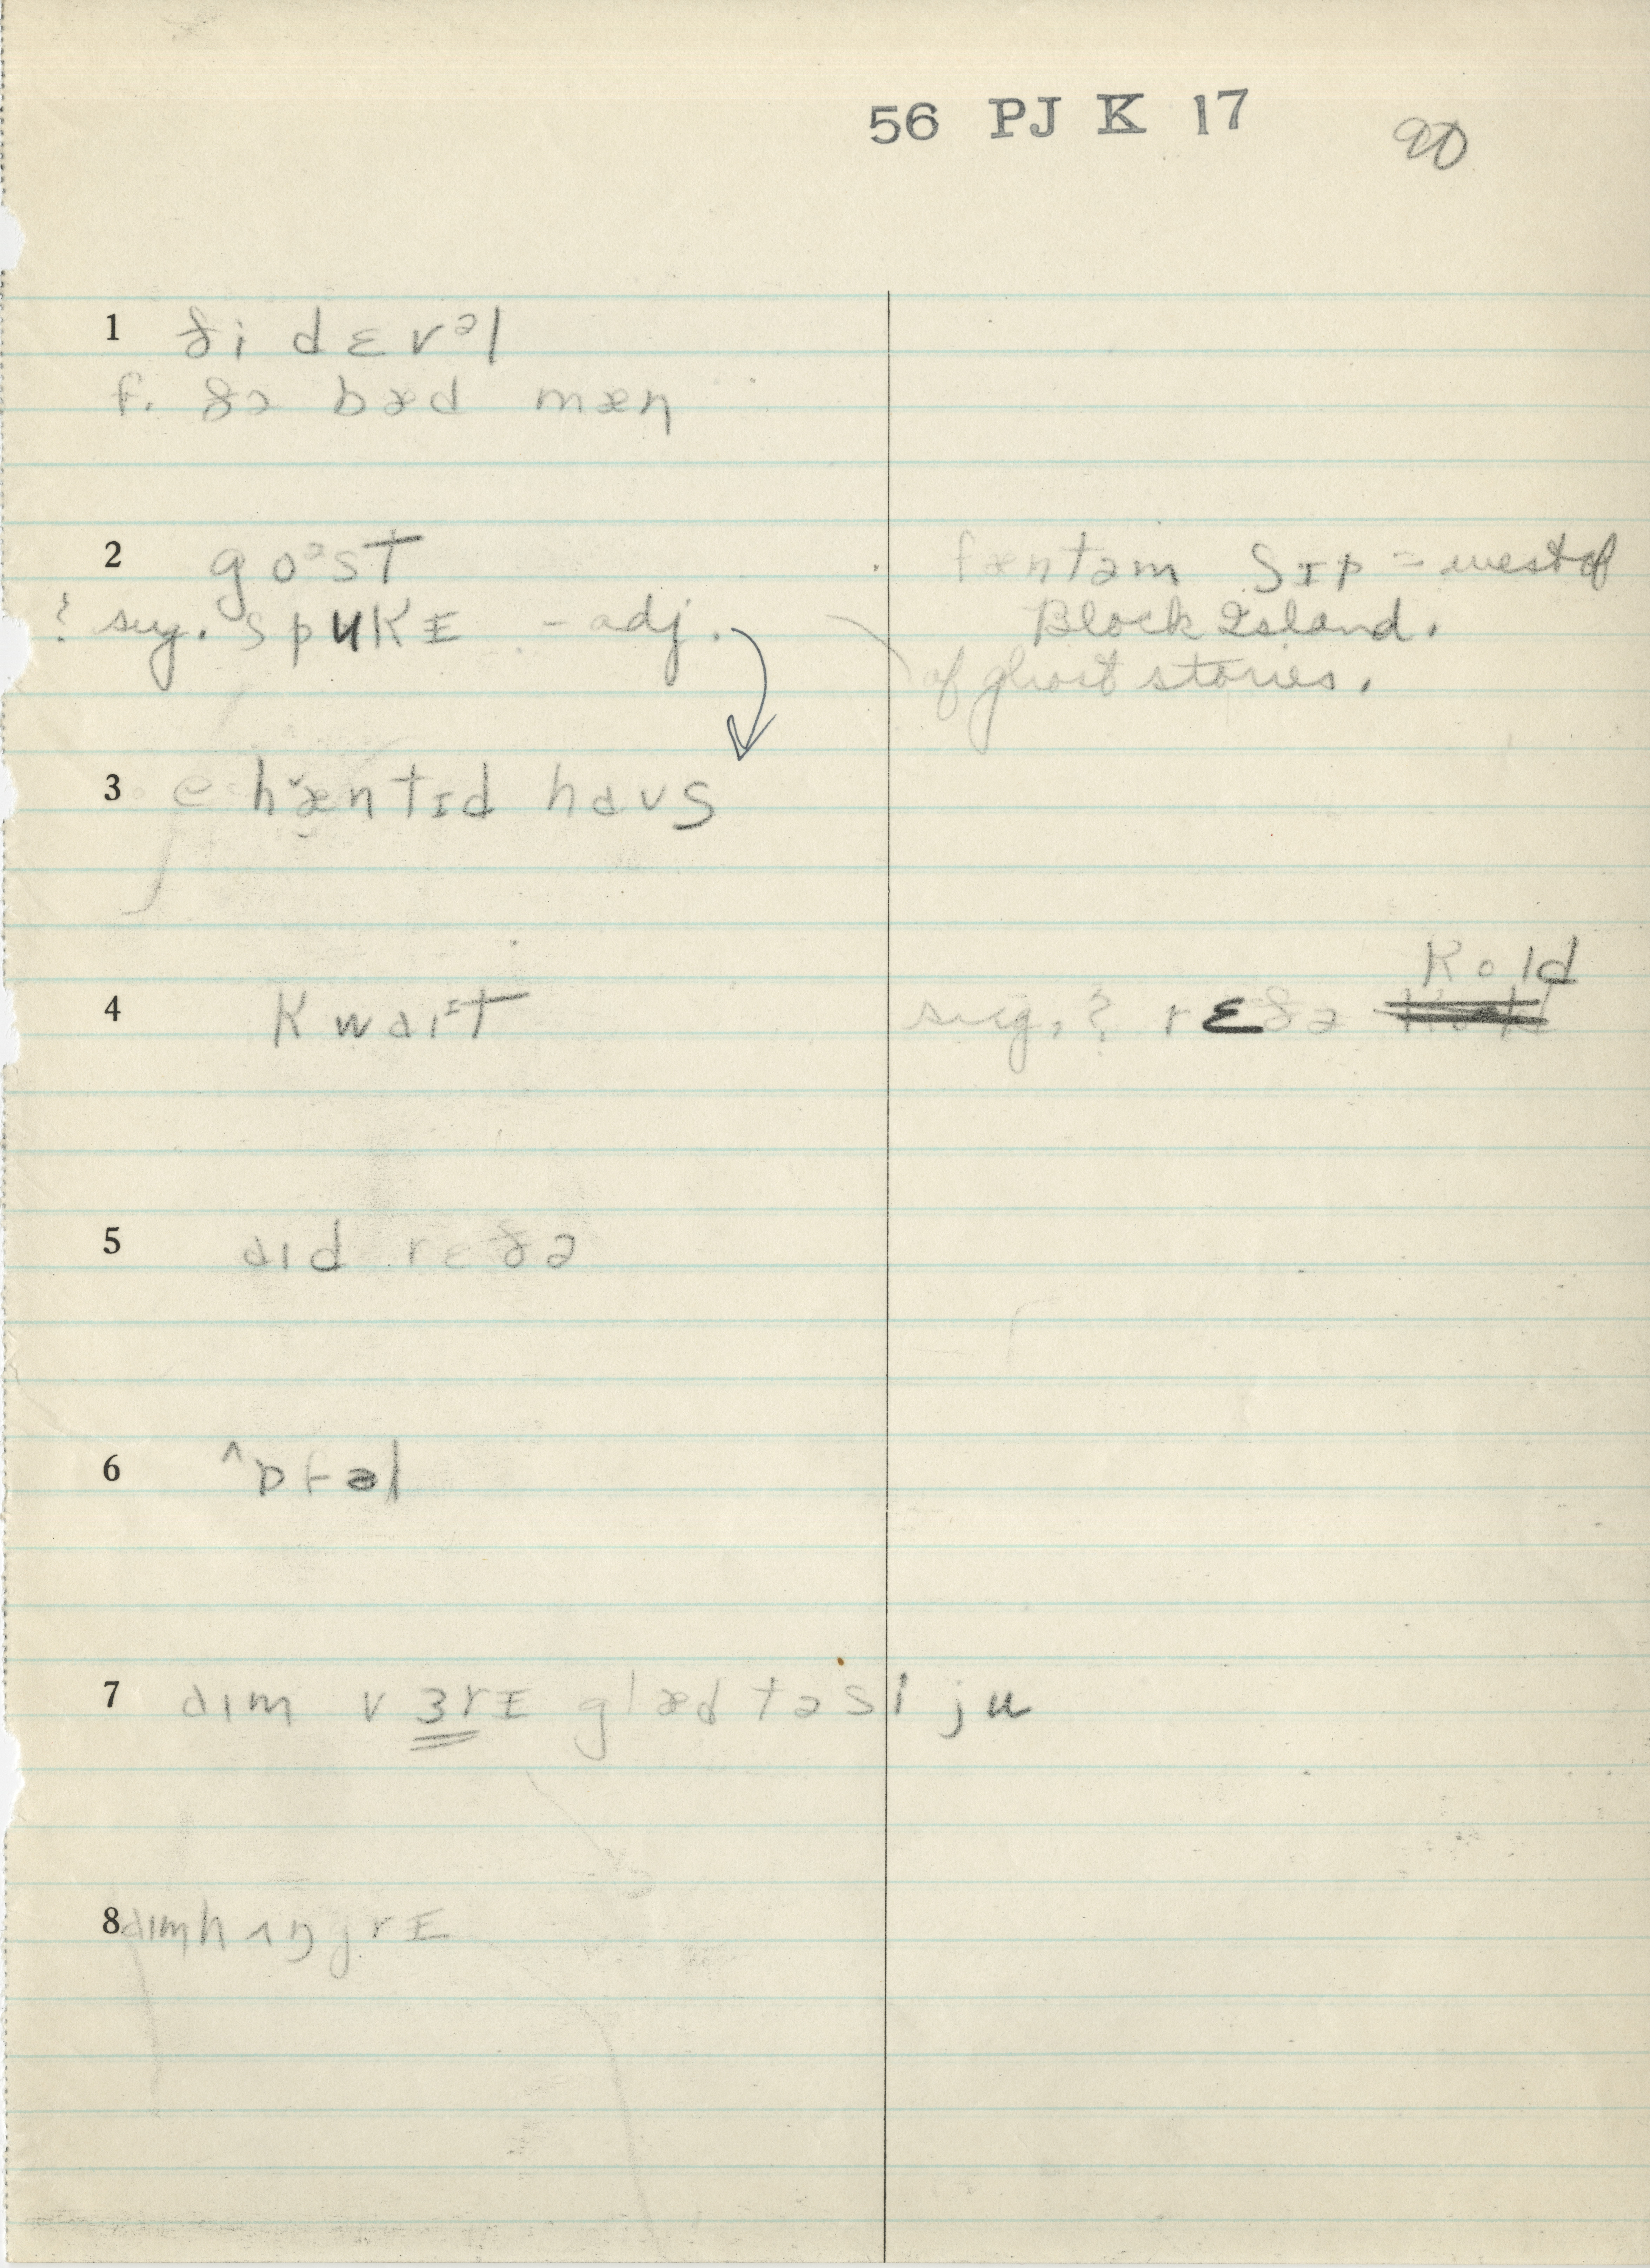 56 PJ K 17 90
1 ði dɛvᵊl
f. ðə bæd mæn
2 goᵊst
? sug. spukɪ - adj.
fæntəm ʃɪp = west of
Block Island.
of ghost stories.
3 e hæntɪd haʊs
4 kwaɪᵊt
sug. ? rɛðə kold
5 aɪd rɛðə
6 ɒfəl
7 aɪm vɜrɪ glæd tə si ju
8 aɪm hʌŋgrɪ